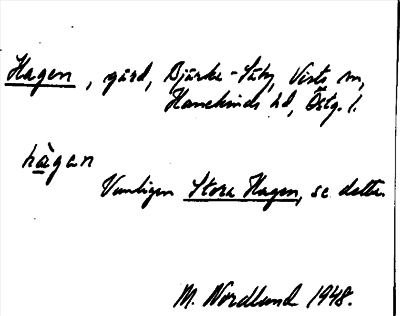 Hagen, gård, Bjärka-Säby, Vists sn,
Hanekinds hd, Östg. l.
hàgan
Vanligen Stora Hagen, se detta.
M. Nordlund 1948.